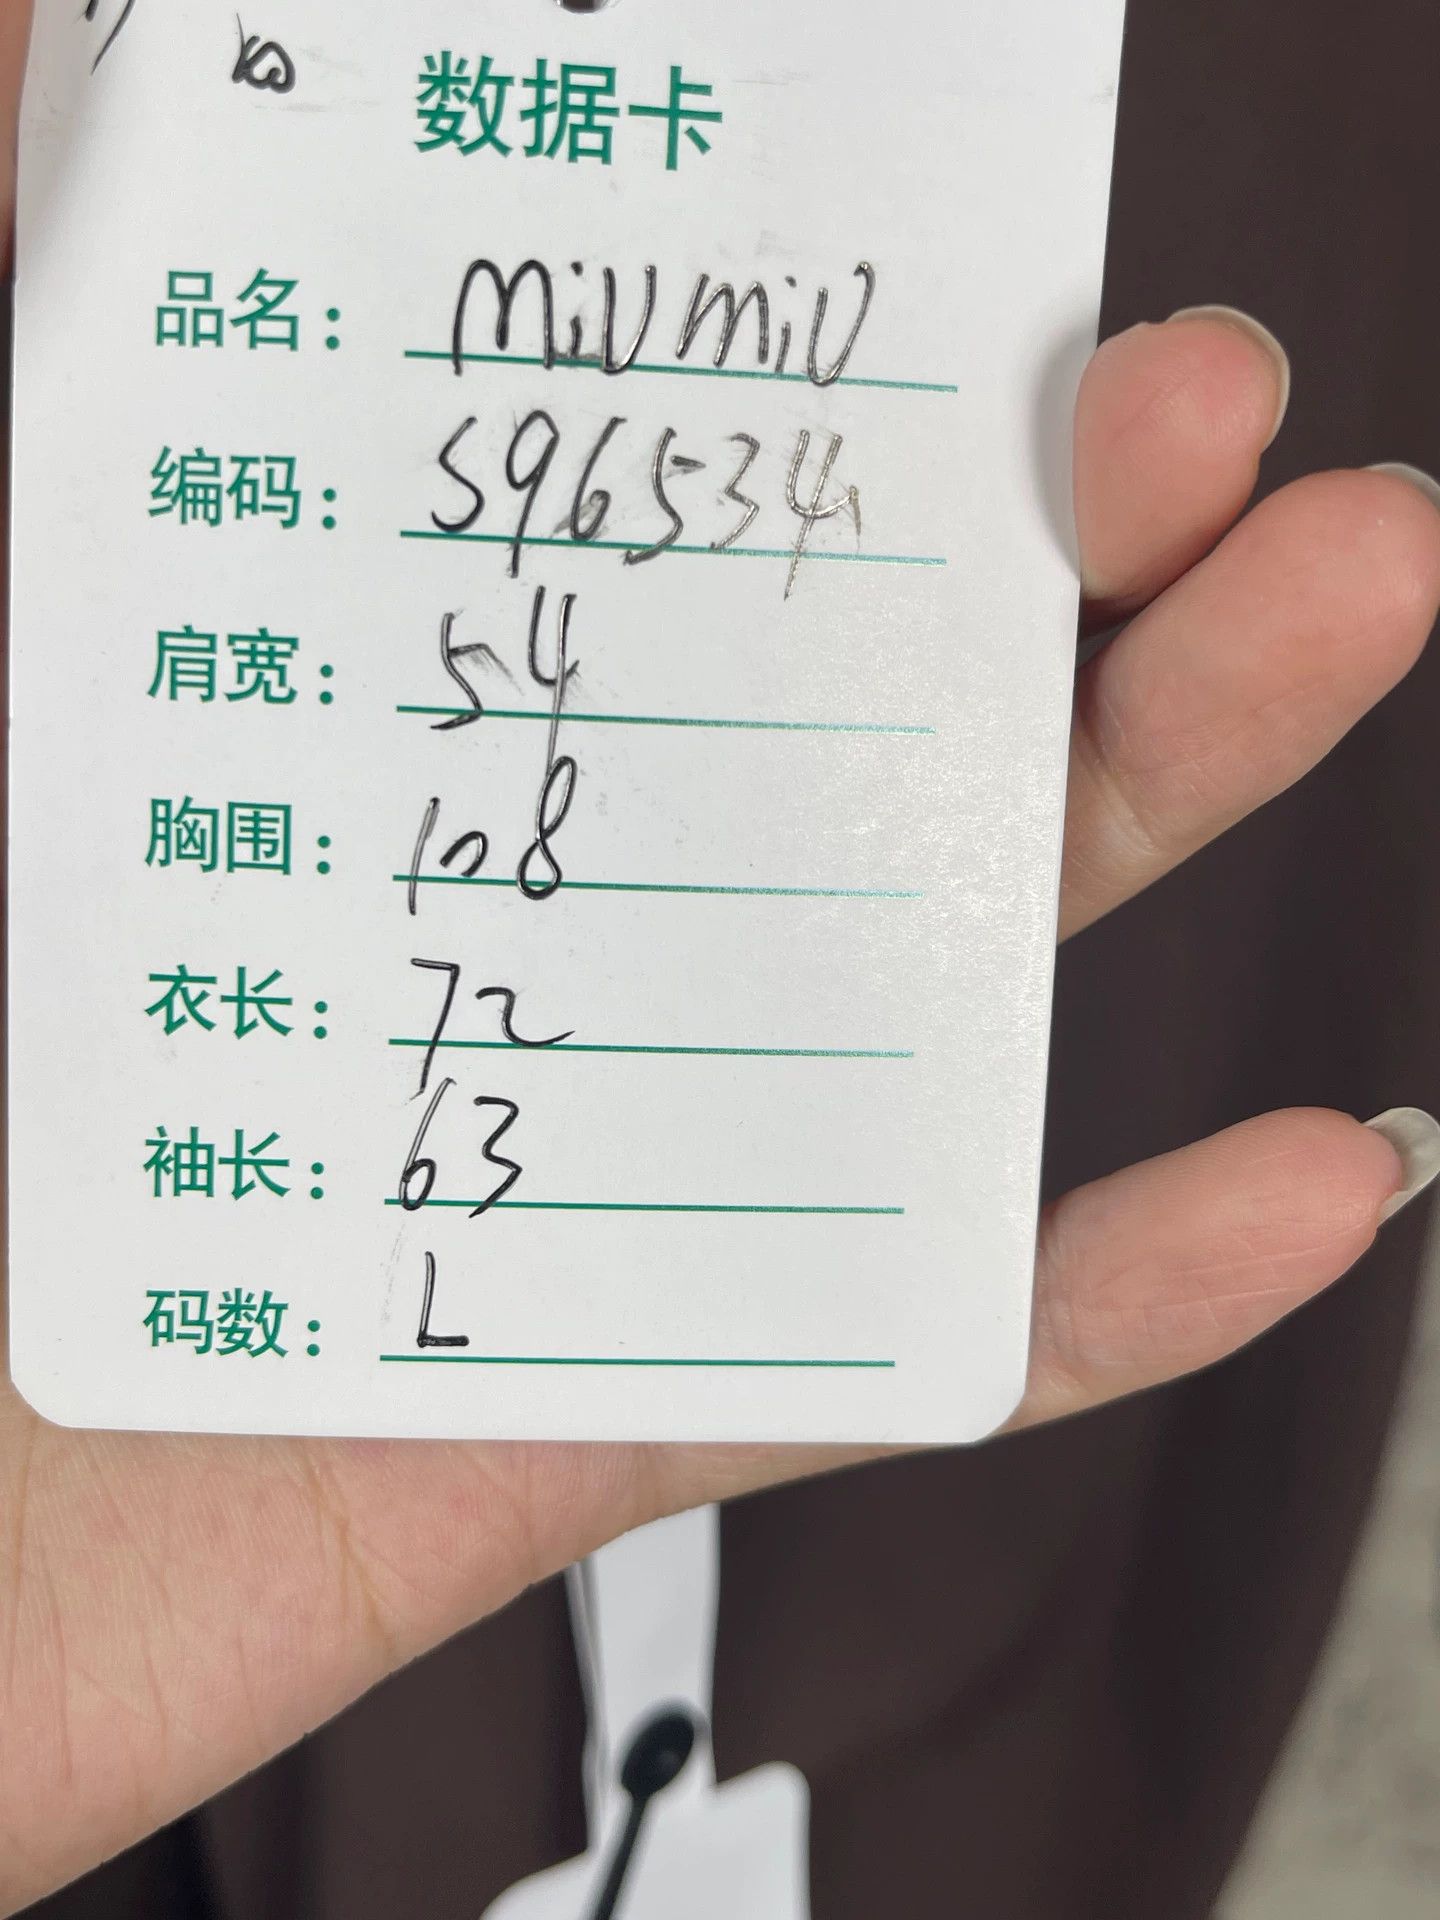 数据卡
品名： miu miu
编码： S96534
肩宽： 54
胸围： 108
衣长： 72
袖长： 63
码数： L